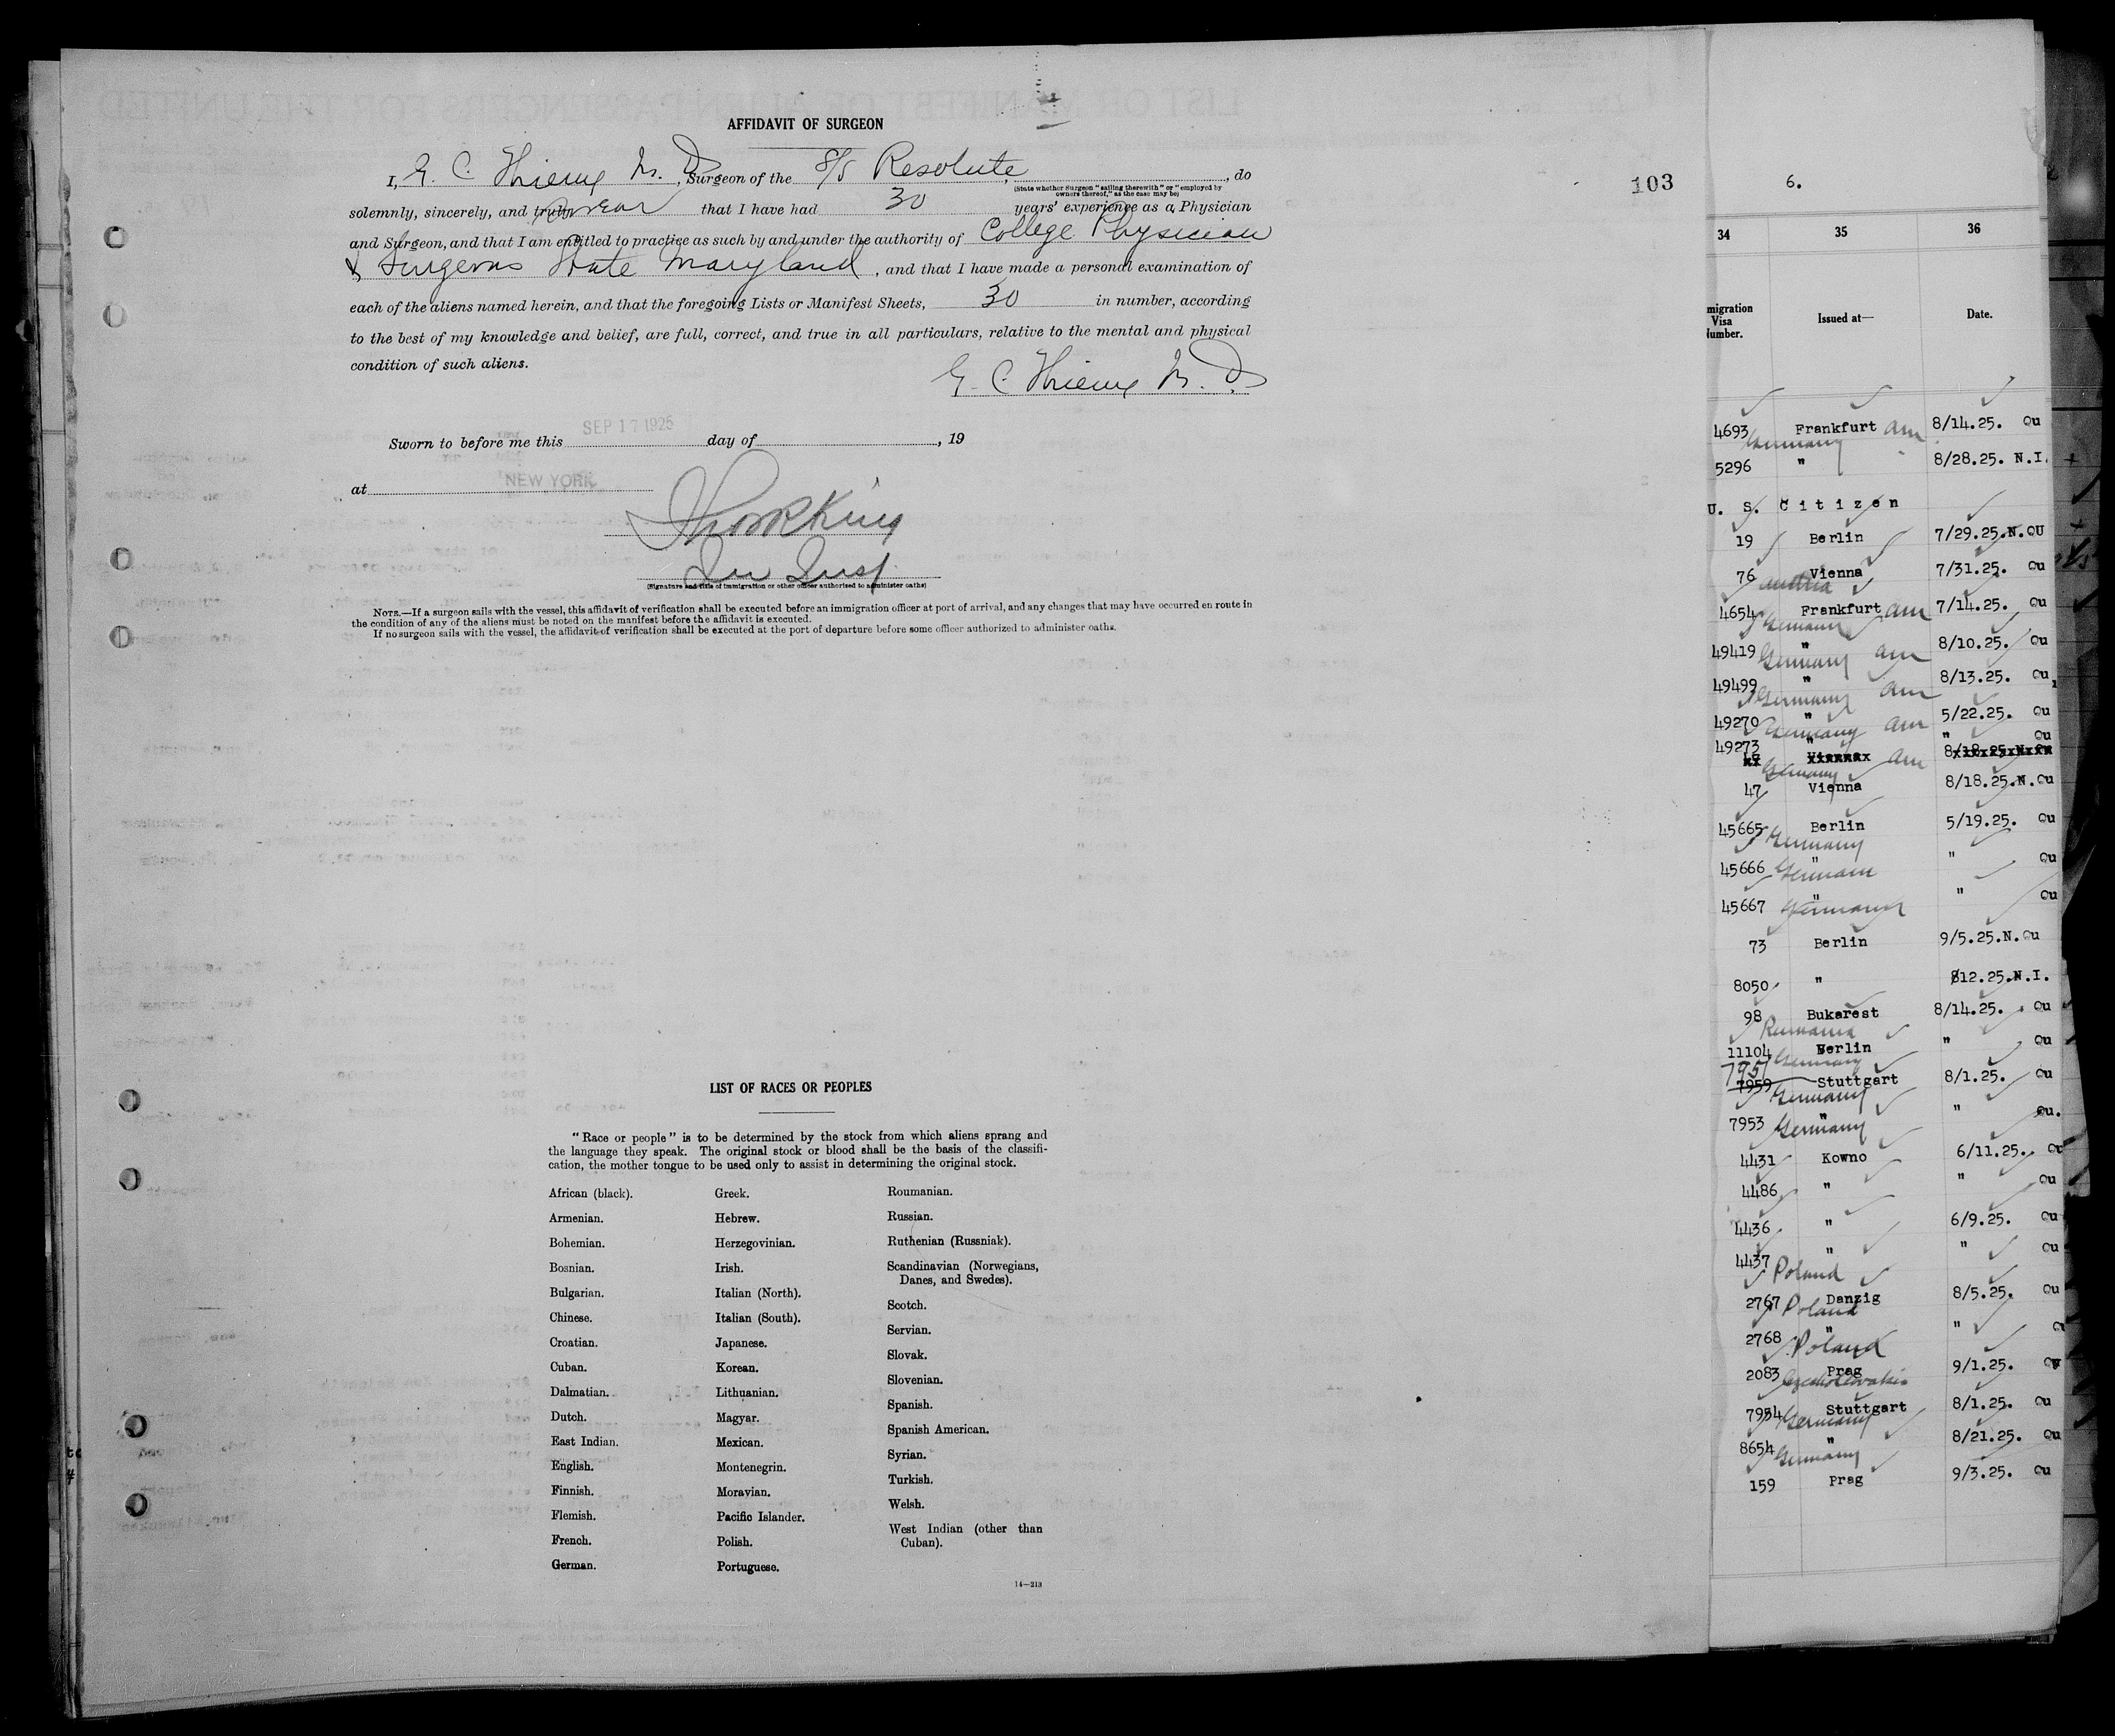 AFFIDAVIT OF SURGEON
I, E. C. M. D., Surgeon of the S/S Resolute, , do
(State whether Surgeon "sailing therewith" or "employed by owners thereof," as the case may be)
solemnly, sincerely, and truly swear that I have had 30 years' experience as a Physician
and Surgeon, and that I am entitled to practice as such by and under the authority of College Physician
& Surgeons State Maryland, and that I have made a personal examination of
each of the aliens named herein, and that the foregoing Lists or Manifest Sheets, 30 in number, according
to the best of my knowledge and belief, are full, correct, and true in all particulars, relative to the mental and physical
condition of such aliens.
E. C. M. D.
Sworn to before me this SEP 17 1925 day of , 19
at NEW YORK
(Signature and title of immigration or other officer authorized to administer oaths)
NOTE.—If a surgeon sails with the vessel, this affidavit of verification shall be executed before an immigration officer at port of arrival, and any changes that may have occurred en route in
the condition of any of the aliens must be noted on the manifest before the affidavit is executed.
If no surgeon sails with the vessel, the affidavit of verification shall be executed at the port of departure before some officer authorized to administer oaths.
LIST OF RACES OR PEOPLES
"Race or people" is to be determined by the stock from which aliens sprang and
the language they speak. The original stock or blood shall be the basis of the classifi-
cation, the mother tongue to be used only to assist in determining the original stock.
African (black).
Armenian.
Bohemian.
Bosnian.
Bulgarian.
Chinese.
Croatian.
Cuban.
Dalmatian.
Dutch.
East Indian.
English.
Finnish.
Flemish.
French.
German.
Greek.
Hebrew.
Herzegovinian.
Irish.
Italian (North).
Italian (South).
Japanese.
Korean.
Lithuanian.
Magyar.
Mexican.
Montenegrin.
Moravian.
Pacific Islander.
Polish.
Portuguese.
Roumanian.
Russian.
Ruthenian (Russniak).
Scandinavian (Norwegians,
Danes, and Swedes).
Scotch.
Servian.
Slovak.
Slovenian.
Spanish.
Spanish American.
Syrian.
Turkish.
Welsh.
West Indian (other than
Cuban).
14—213
103
6.
34 35 36
migration
Visa
Number.
Issued at—
Date.
4693 Frankfurt am 8/14.25. Qu
Germany
5296 " 8/28.25. N.I.
U. S. Citizen
19 Berlin 7/29.25.N.QU
76 Vienna 7/31.25. Qu
Austria
4654 Frankfurt am 7/14.25. Qu
Germany
49419 " 8/10.25. Qu
Germany am
49499 " 8/13.25. Qu
Germany am
49270 " 5/22.25. Qu
Germany am
49273 " " Qu
Germany am
47 Vienna 8/18.25.N.Qu
45665 Berlin 5/19.25. Qu
Germany
45666 " " Qu
Germany
45667 " " Qu
Germany
73 Berlin 9/5.25.N.Qu
8050 " 812.25.N.I.
98 Bukarest 8/14.25. Qu
Rumania
11104 Berlin " Qu
Germany
7951
7959 Stuttgart 8/1.25. Qu
Germany
7953 " " Qu.
Germany
4431 Kowno 6/11.25. Qu
4486 " " Qu
4436 " 6/9.25. Qu
4437 " " Qu
Poland
2767 Danzig 8/5.25. Qu
Poland
2768 " "
Poland
2083 Prag 9/1.25.
Czechoslovakia
7954 Stuttgart 8/1.25. Qu
Germany
8654 " 8/21.25. Qu
Germany
159 Prag 9/3.25. Qu